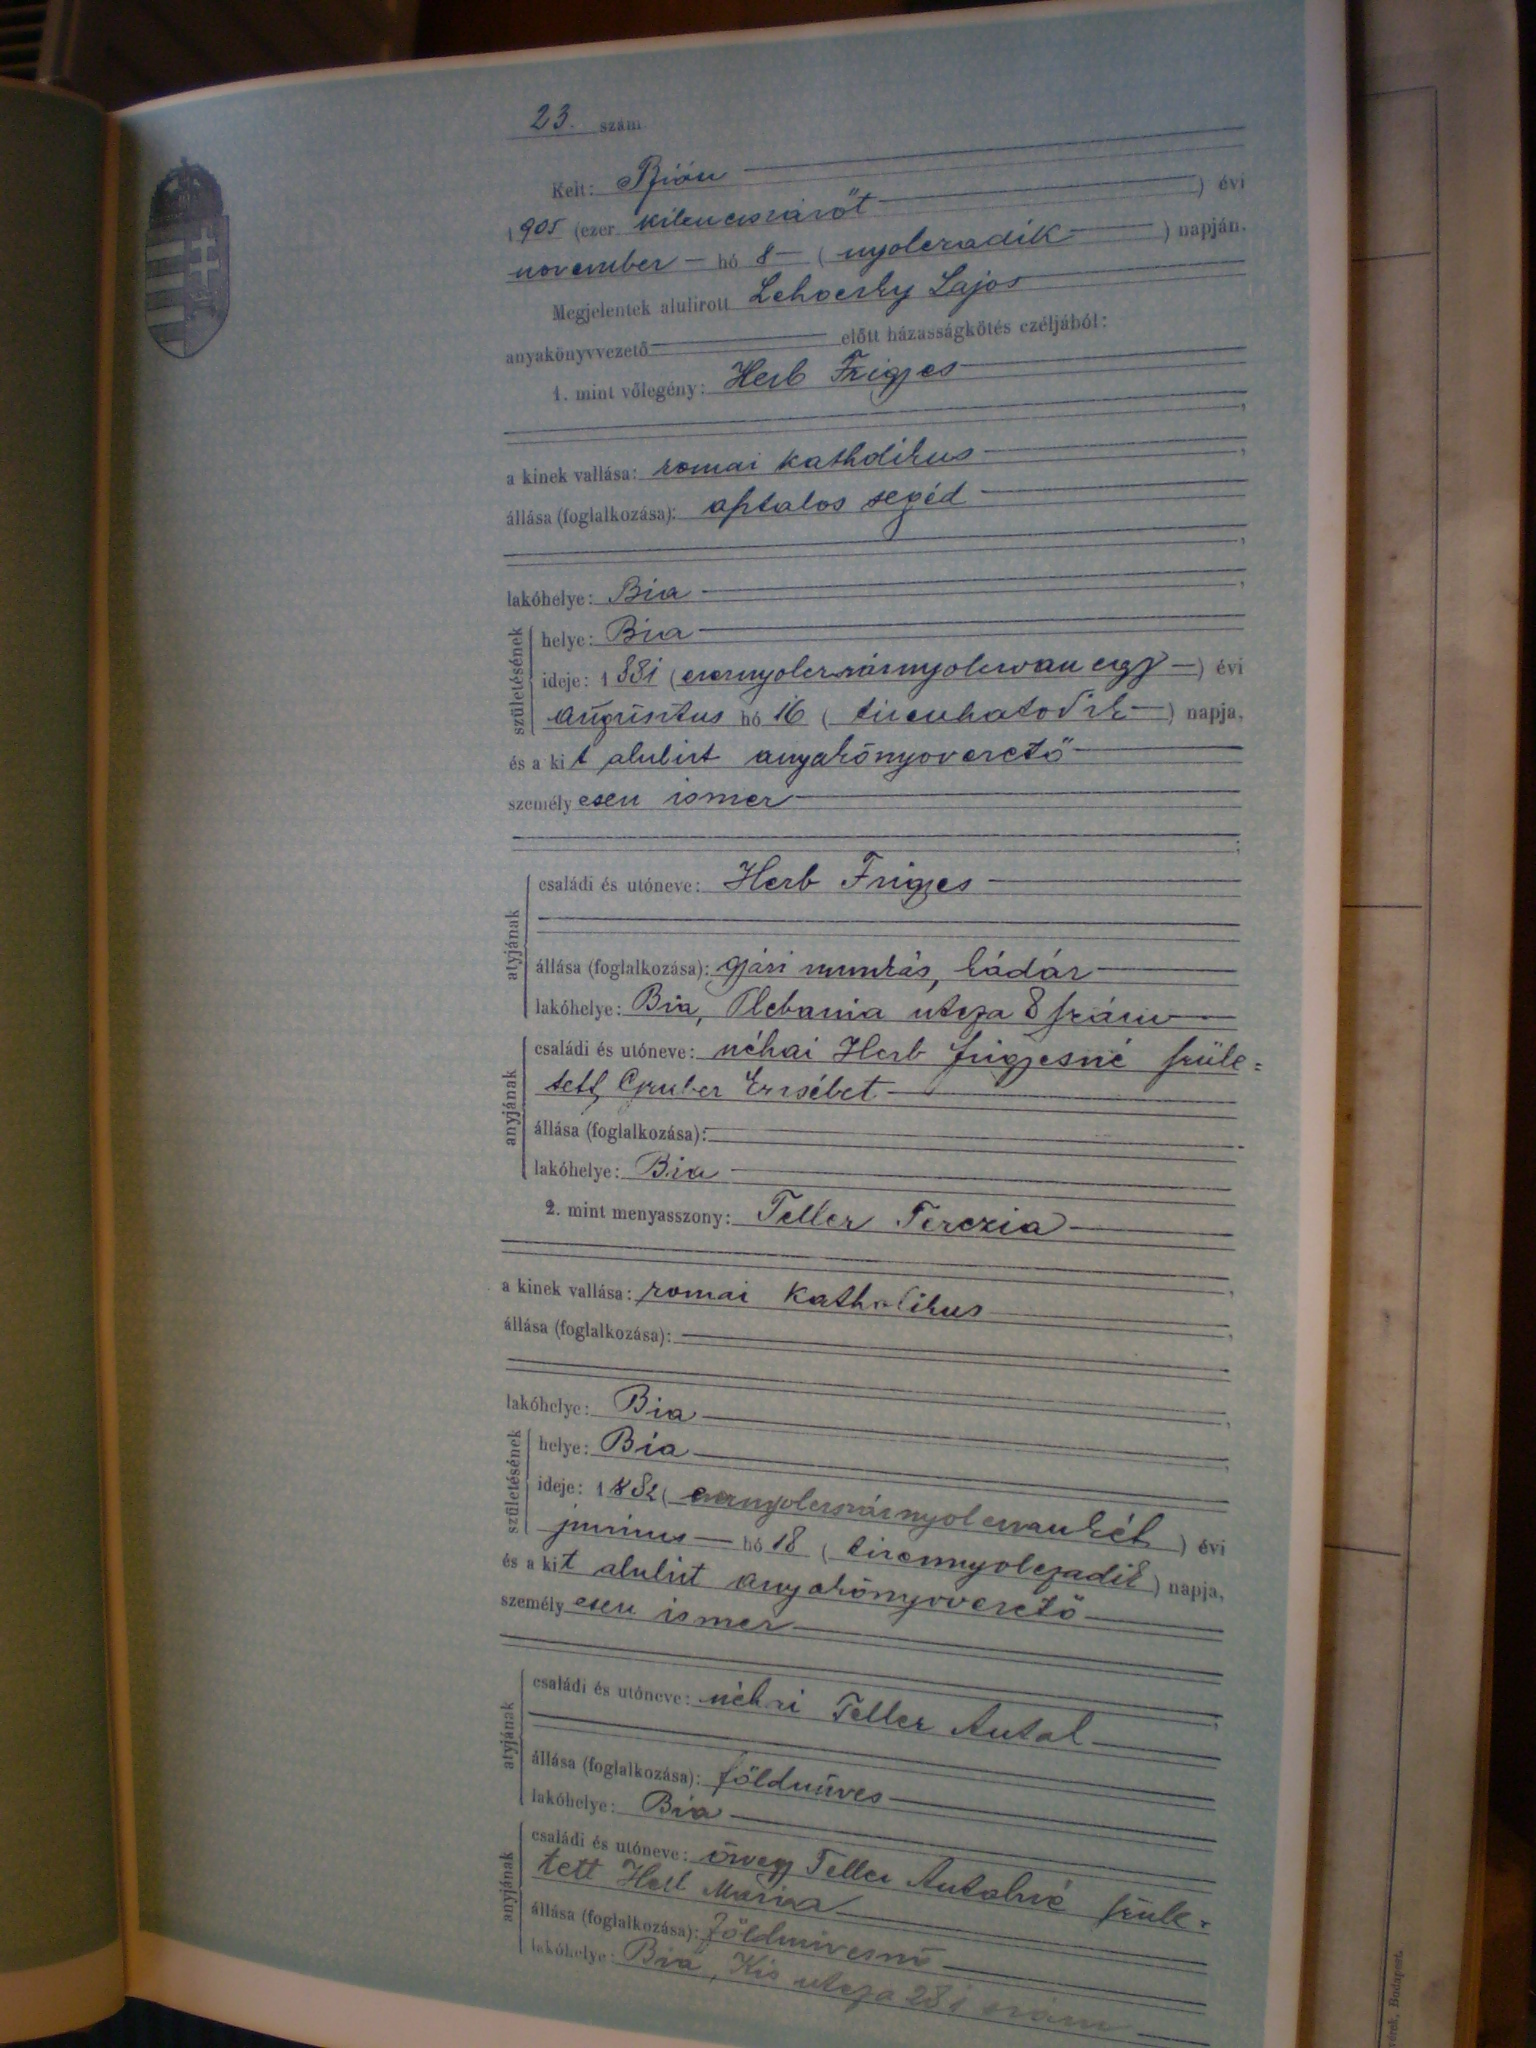 23. szám
Kelt: Bián
1905 (ezer kilenczszázöt) évi
november hó 8 (nyolczadik) napján.
Megjelentek alulírott Lehoczky Lajos
anyakönyvvezető előtt házasságkötés czéljából:
1. mint vőlegény: Herb Frigyes
a kinek vallása: romai katholikus
állása (foglalkozása): asztalos segéd
lakóhelye: Bia
születésének
helye: Bia
ideje: 1881 (ezernyolczszáznyolczvan egy) évi
augusztus hó 16 (tizenhatodik) napja,
és a kit alulirt anyakönyvvezető
személyesen ismer
atyjának
családi és utóneve: Herb Frigyes
állása (foglalkozása): gyári munkás, kádár
lakóhelye: Bia, Plebania utcza 8 szám
anyjának
családi és utóneve: néhai Herb Frigyesné szüle=
tett Gruber Erzsébet
állása (foglalkozása):
lakóhelye: Bia
2. mint menyasszony: Teller Terezia
a kinek vallása: romai katholikus
állása (foglalkozása):
lakóhelye: Bia
születésének
helye: Bia
ideje: 1882 (ezernyolczszáznyolczvankét) évi
junius hó 18 (tizennyolczadik) napja,
és a kit alulirt anyakönyvvezető
személyesen ismer
atyjának
családi és utóneve: néhai Teller Antal
állása (foglalkozása): földmüves
lakóhelye: Bia
anyjának
családi és utóneve: özvegy Teller Antalné szüle=
tett Mariza
állása (foglalkozása): földmivesnő
lakóhelye: Bia, Kis utcza 281 szám
Budapest.